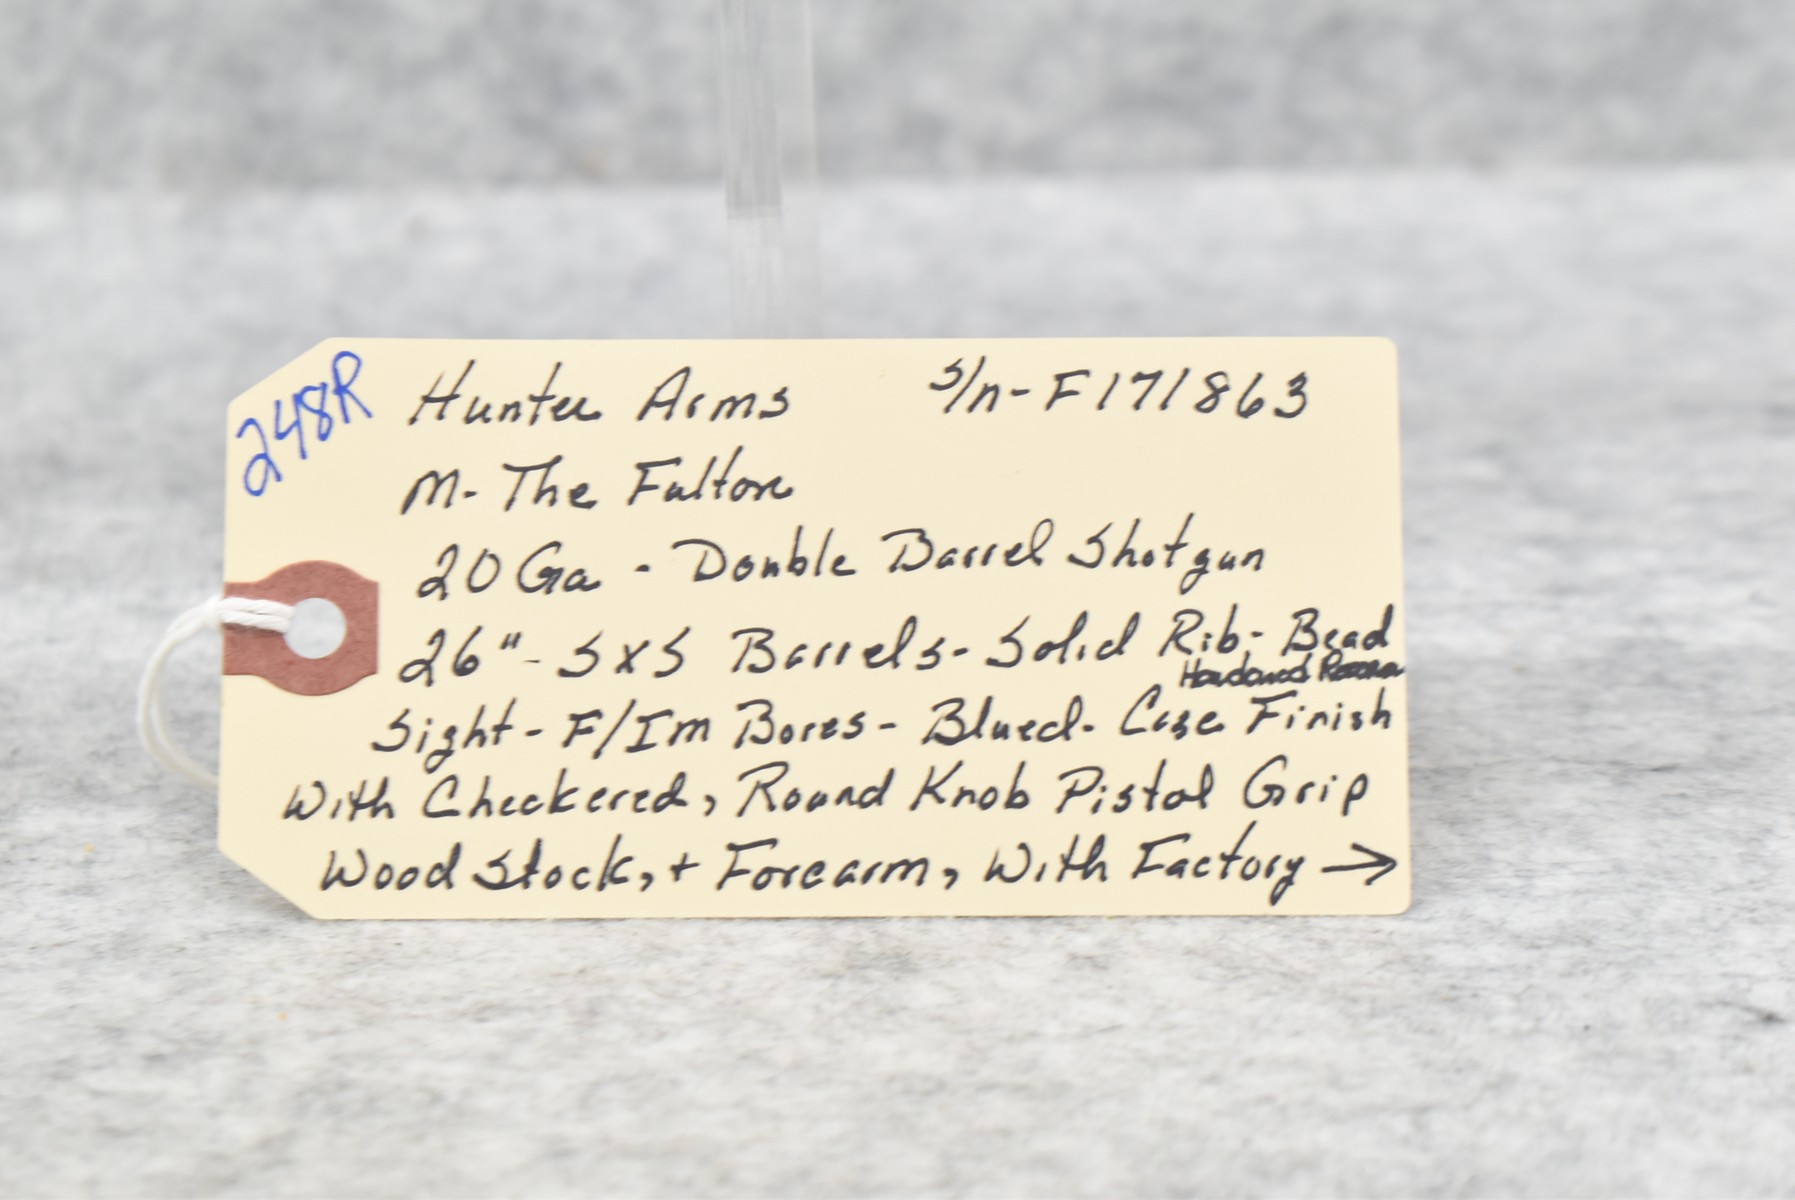 248R
Hunter Arms S/n-F171863
M- The Fulton
20 Ga - Double Barrel Shotgun
26" - SxS Barrels - Solid Rib - Bead
Sight - F/Im Bores - Blued - Case Finish
With Checkered, Round Knob Pistol Grip
Wood Stock, + Forearm, With Factory →